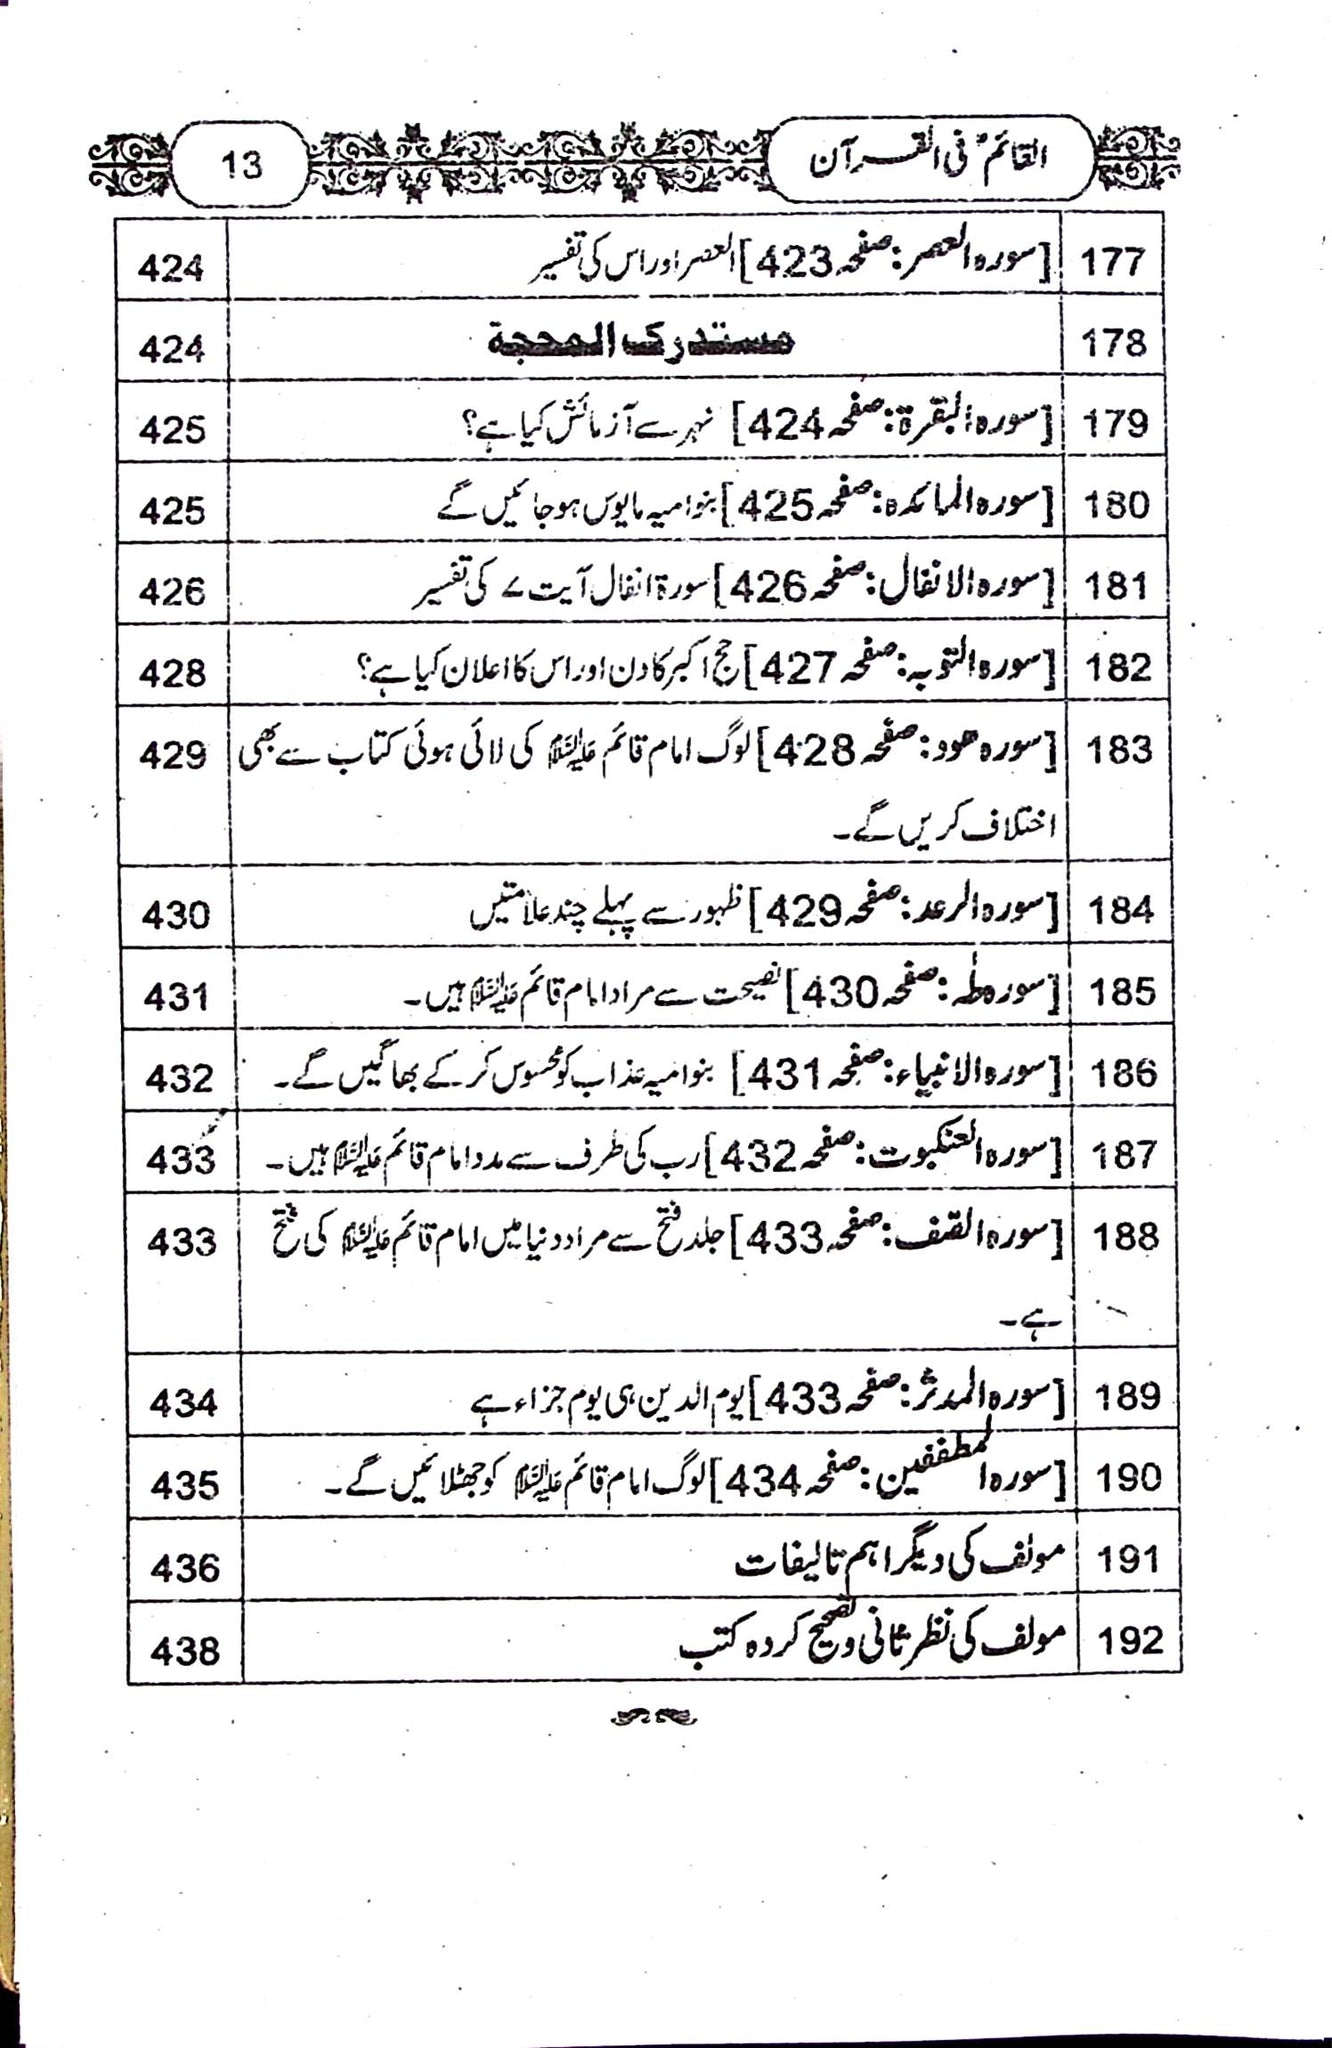 القائمؑ فی القرآن 13
177 [سورہ العصر: صفحہ 423] العصر اور اس کی تفسیر 424
178 مستدرک المحجة 424
179 [سورہ البقرة: صفحہ 424] نہر سے آزمائش کیا ہے؟ 425
180 [سورہ المائدہ: صفحہ 425] بنوامیہ مایوس ہو جائیں گے 425
181 [سورہ الانفال: صفحہ 426] سورۃ انفال آیت ۷ کی تفسیر 426
182 [سورہ التوبہ: صفحہ 427] حج اکبر کا دن اور اس کا اعلان کیا ہے؟ 428
183 [سورہ ھود: صفحہ 428] لوگ امام قائم علیہ السلام کی لائی ہوئی کتاب سے بھی 429
اختلاف کریں گے۔
184 [سورہ الرعد: صفحہ 429] ظہور سے پہلے چند علامتیں 430
185 [سورہ طٰہ: صفحہ 430] نصیحت سے مراد امام قائم علیہ السلام ہیں۔ 431
186 [سورہ الانبیاء: صفحہ 431] بنوامیہ عذاب کو محسوس کر کے بھاگیں گے۔ 432
187 [سورہ العنکبوت: صفحہ 432] رب کی طرف سے مدد امام قائم علیہ السلام ہیں۔ 433
188 [سورہ القف: صفحہ 433] جلد فتح سے مراد دنیا میں امام قائم علیہ السلام کی فتح 433
ہے۔
189 [سورہ المدثر: صفحہ 433] یوم الدین ہی یوم جزاء ہے 434
190 [سورہ المطففین: صفحہ 434] لوگ امام قائم علیہ السلام کو جھٹلائیں گے۔ 435
191 مولف کی دیگر اہم تالیفات 436
192 مولف کی نظر ثانی و تصحیح کردہ کتب 438